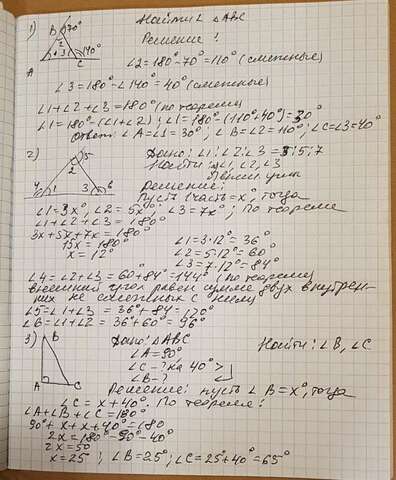 1) Найти ∠ ∆ABC
B 70° 2 1 3 140° A C
Решение:
∠2 = 180° - 70° = 110° (смежные)
∠3 = 180° - ∠140° = 40° (смежные)
∠1 + ∠2 + ∠3 = 180° (по теореме)
∠1 = 180° - (∠1 + ∠2); ∠1 = 180° - (110° + 40°) = 30°
Ответ: ∠A = ∠1 = 30°; ∠B = ∠2 = 110°; ∠C = ∠3 = 40°
2) Дано: ∠1:∠2:∠3 = 3:5:7
5 2 4 1 3 6
Найти: ∠1, ∠2, ∠3
Внешн. углы
Решение:
Пусть 1 часть = x°, тогда
∠1 = 3x°, ∠2 = 5x°, ∠3 = 7x°; По теореме
∠1 + ∠2 + ∠3 = 180°
3x + 5x + 7x = 180°
15x = 180°
x = 12°
∠1 = 3·12° = 36°
∠2 = 5·12° = 60°
∠3 = 7·12° = 84°
∠4 = ∠2 + ∠3 = 60 + 84° = 144° (по теореме)
внешний угол равен сумме двух внутрен-
них не смежных с ним
∠5 = ∠1 + ∠3 = 36° + 84° = 120°
∠6 = ∠1 + ∠2 = 36° + 60° = 96°
3) Дано: ∆ABC Найти: ∠B, ∠C
B A C
∠A = 90°
∠C - ? на 40° >
∠B - ?
Решение: пусть ∠B = x°, тогда
∠C = x + 40°. По теореме:
∠A + ∠B + ∠C = 180°
90° + x + x + 40° = 180
2x = 180° - 90° - 40°
2x = 50
x = 25; ∠B = 25°; ∠C = 25 + 40° = 65°